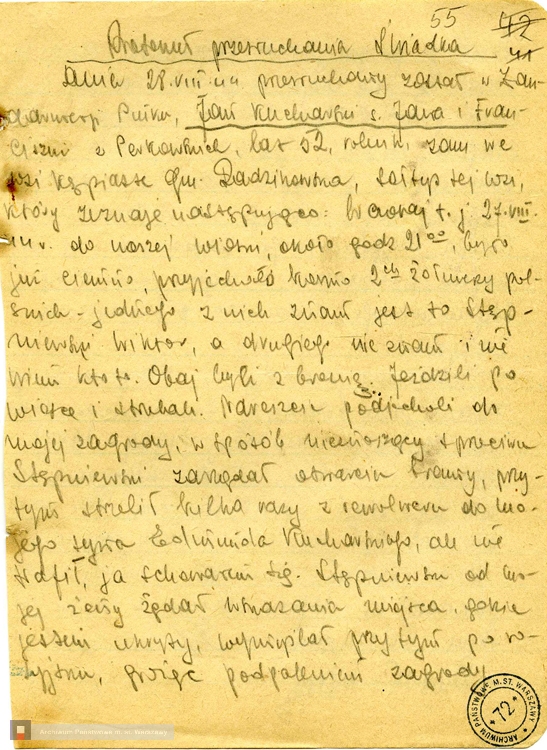 55 42
41
Protokuł przesłuchania Świadka
Dnia 28.VIII. przesłuchany został w
Pułku, Jan Kucharski s. Jana i Fran-
ciszki z Perkowskich, lat 52, rolnik, zam we
wsi Kępiaste gm. Radzikowska, sołtys tej wsi,
który zeznaje następująco: wczoraj t. j. 27.VIII.
do naszej wioski, około godz 21⁰⁰, było
już ciemno, przyjechało konno 2ch żołnierzy pol-
skich - jednego z nich znam jest to Stęp-
niewski Wiktor, a drugiego nie znam i nie
wiem kto to. Obaj byli z bronią. Jeździli po
wiosce i strzelali. Nareszcie podjechali do
mojej zagrody, w sposób nieznoszący sprzeciwu
Stępniewski zażądał otwarcia bramy, przy-
tym strzelił kilka razy z rewolweru do mo-
jego syna Edmunda Kucharskiego, ale nie
trafił, ja schowałem się. Stępniewski od mo-
jej żony żądał wskazania miejsca, gdzie
jestem ukryty, wymyślał przytym po ro-
syjsku, grożąc podpaleniem zagrody
ARCHIWUM PAŃSTWOWE M. ST. WARSZAWY
72
Archiwum Państwowe m. st. Warszawy